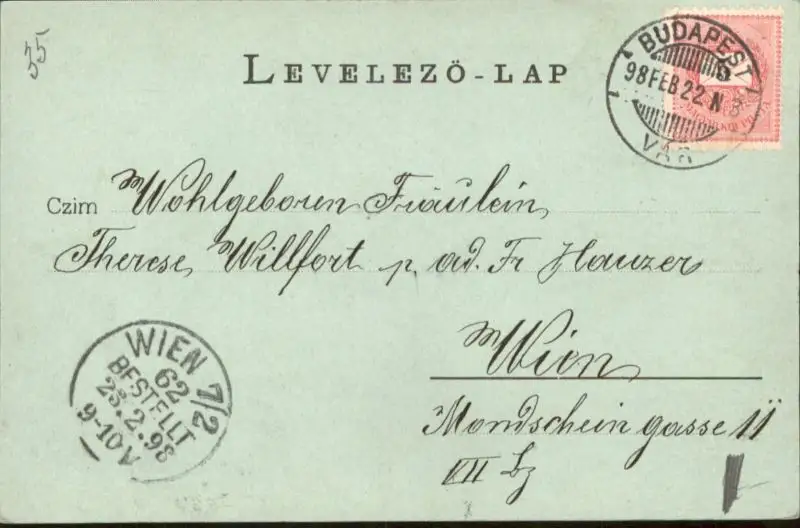 35
LEVELEZŐ-LAP
BUDAPEST
98 FEB 22 N
VÁR
Czim Wohlgeboren Fräulein
Therese Willfort p. ad. Fr Hauzer
Wien
Mondscheingasse 11
VII Bz
WIEN 7/2
62
BESTELLT
23.2.98
9-10 V